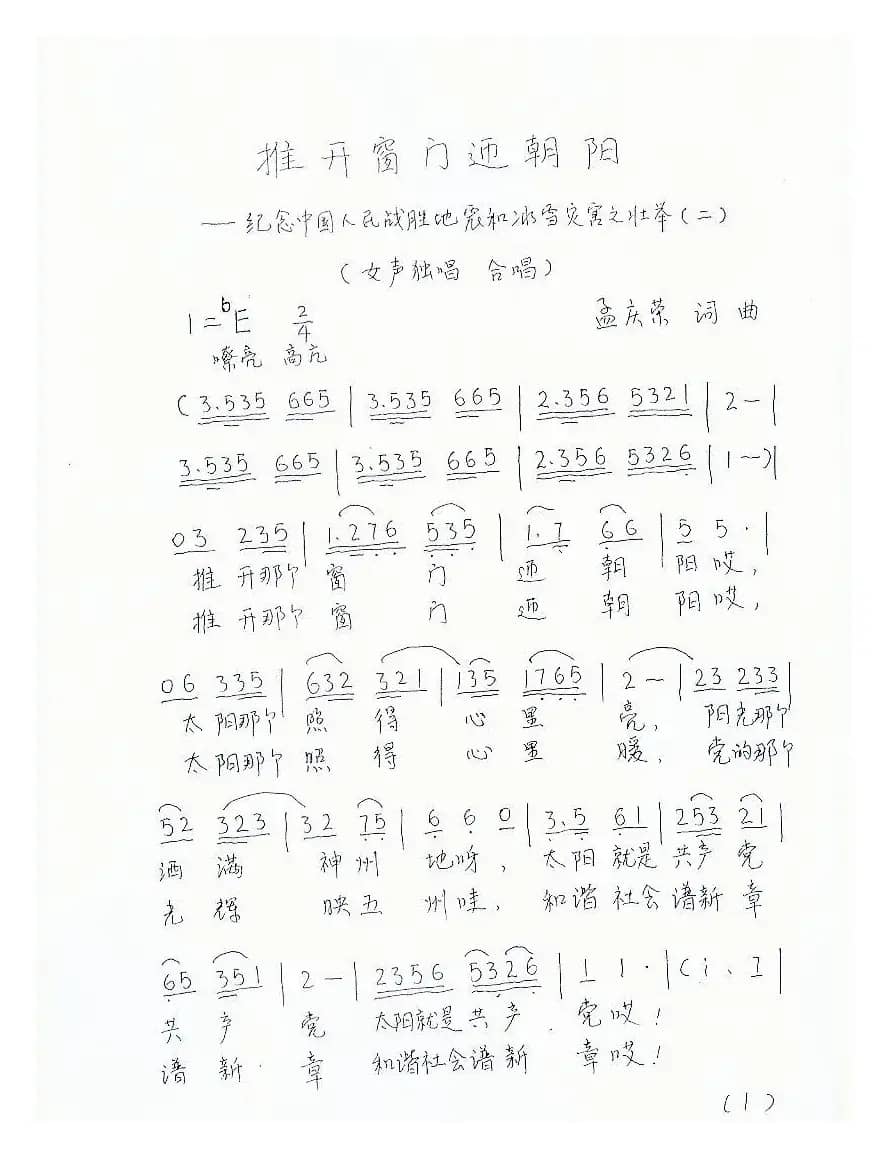 推开窗门迊朝阳
——纪念中国人民战胜地震和冰雪灾害之壮举(二)
(女声独唱 合唱)
1=♭E 2/4 孟庆荣 词 曲
嘹亮 高亢
(3.535 665 | 3.535 665 | 2.356 5321 | 2 - |
3.535 665 | 3.535 665 | 2.356 5326 | 1 - ) |
03 235 | 1.276 535 | 1.7 66 | 5 5· |
推 开那个 窗 门 迊 朝 阳哎,
推 开那个 窗 门 迊 朝 阳哎,
06 335 | 632 321 | 135 1765 | 2 - | 23 233 |
太 阳那个 照 得 心 里 亮, 阳光那个
太 阳那个 照 得 心 里 暖, 党的那个
52 323 | 32 75 | 6 6 0 | 3.5 61 | 253 21 |
洒 满 神 州 地呀, 太 阳 就是 共产 党
光 辉 映 五 州哇, 和谐 社会 谱新 章
65 351 | 2 - | 2356 5326 | 1 1· | (i、I |
共 产 党 太阳就是 共 产 党哎!
谱 新 章 和谐社会 谱 新 章哎!
(1)